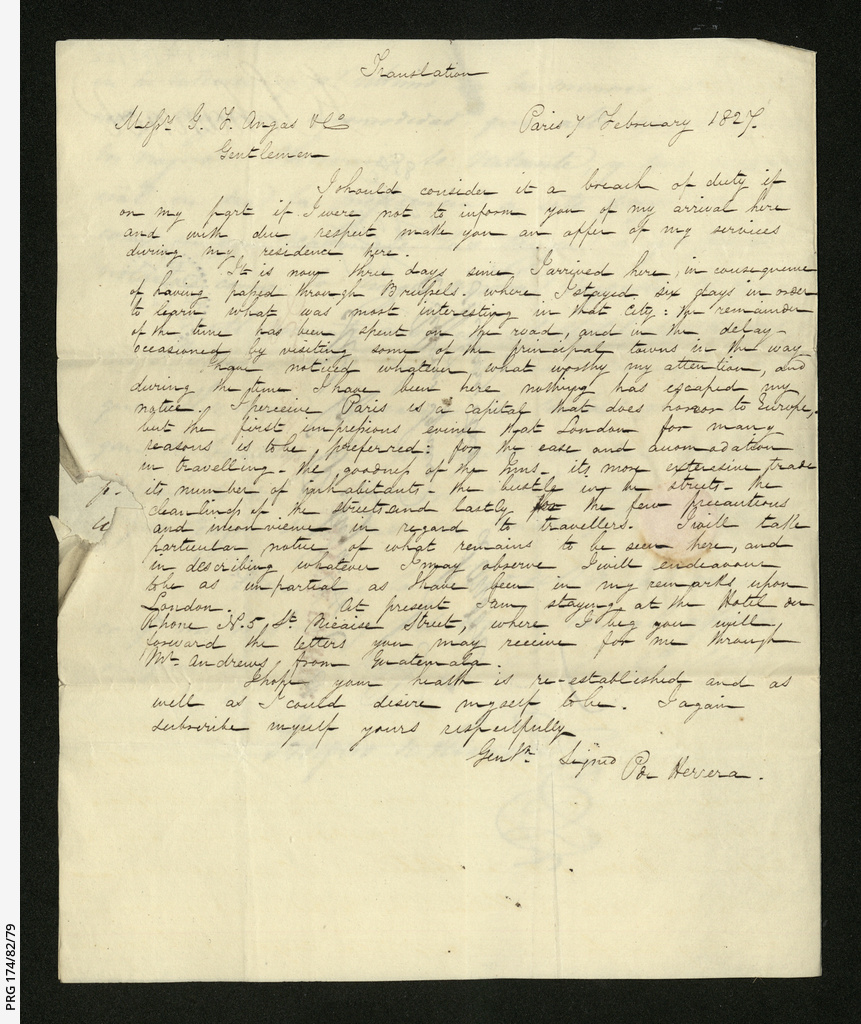 Translation
Messrs. G. F. Angas & Co
Paris 7 February 1827.
Gentlemen
I should consider it a breach of duty if
on my part if I were not to inform you of my arrival here
and with due respect make you an offer of my services
during my residence here.
It is now three days since I arrived here, in consequence
of having passed through Brussels where I stayed six days in order
to learn what was most interesting in that City: the remainder
of the time has been spent on the road, and in the delay
occasioned by visiting some of the principal towns in the way
I have noticed whatever, what worthy my attention, and
during the time I have been here nothing has escaped my
notice. I perceive Paris is a capital that does honor to Europe,
but the first impressions evince that London for many
reasons is to be preferred: for the ease and accomodation
in travelling - the goodness of the Inns - its more extensive trade
its number of inhabitants - the bustle in the streets - the
cleanliness of the streets and lastly the few precautions
and inconvenience in regard to travellers. I will take
particular notice of what remains to be seen here, and
in describing whatever I may observe I will endeavour
to be as impartial as I have been in my remarks upon
London. At present I am staying at the Hotel du
Rhone No. 5, St. Nicaise Street, where I beg you will
forward the letters you may receive for me through
Mr. Andrews from Guatemala.
I hope your health is re-established and as
well as I could desire myself to be. I again
subscribe myself yours respectfully
Gentn. Signed P de Herrera.
PRG 174/82/79